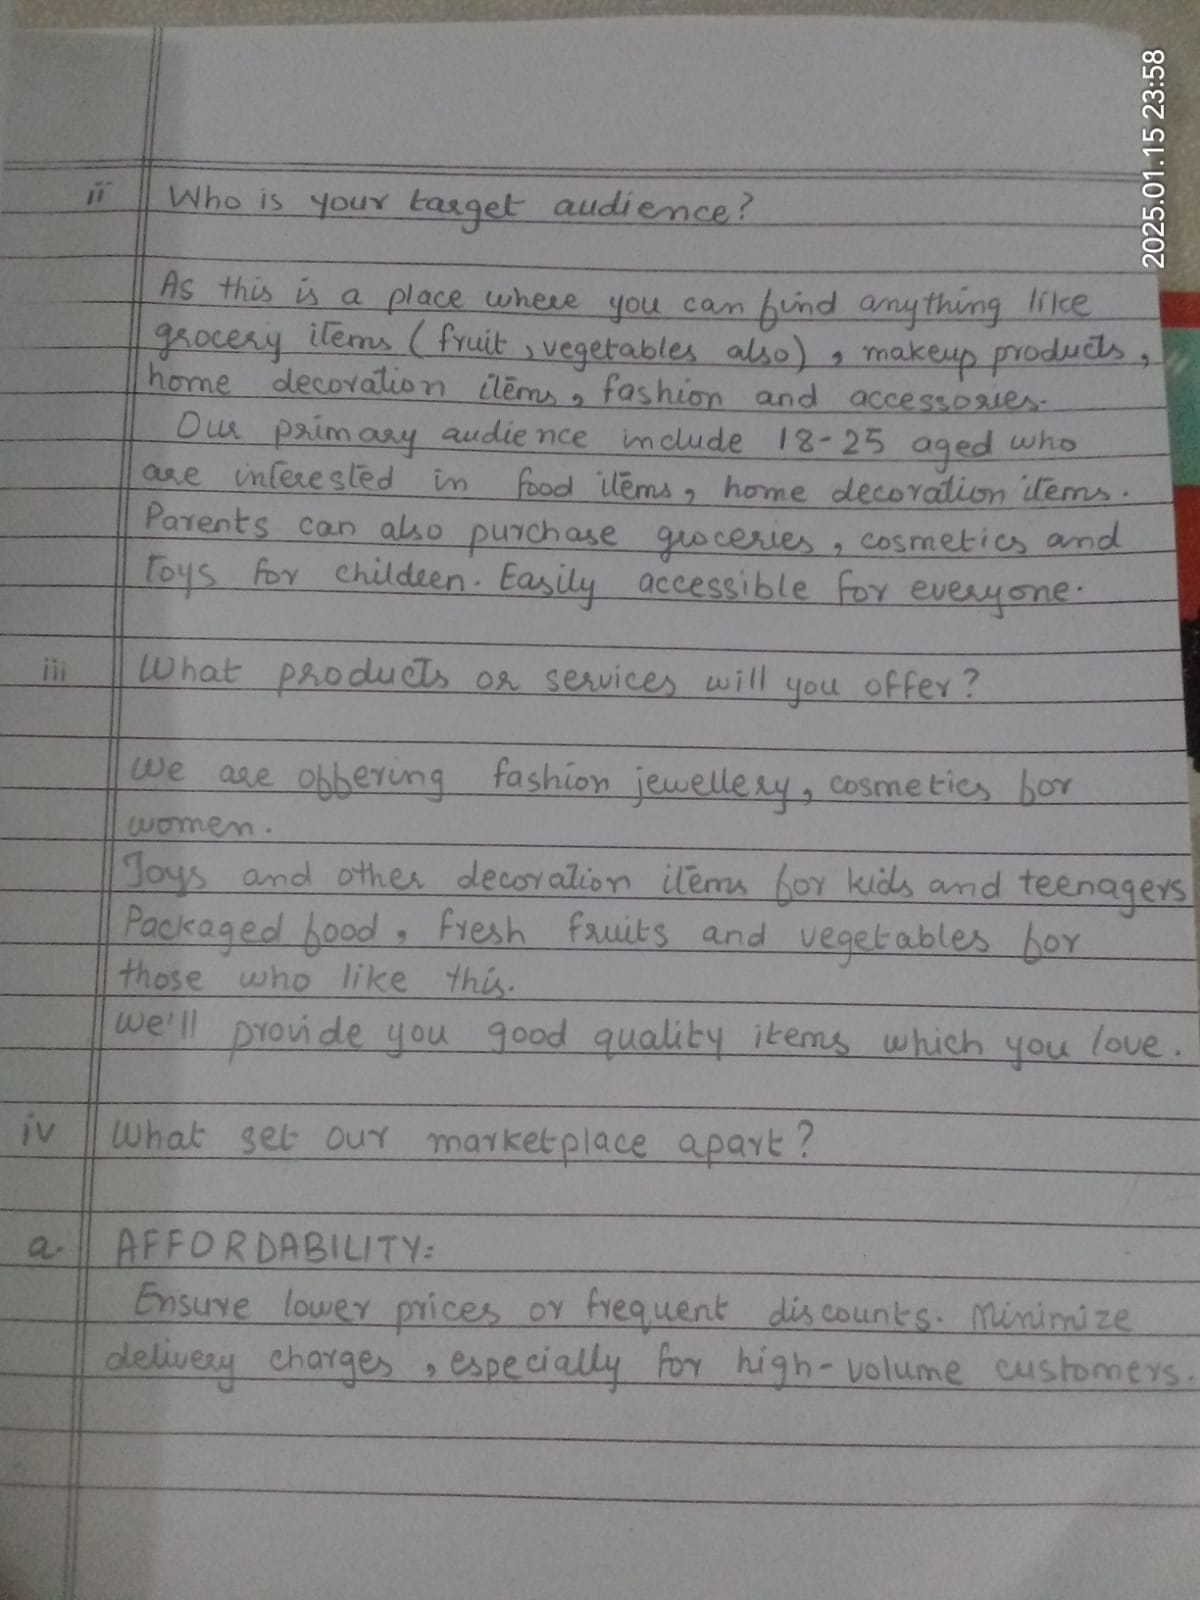 ii Who is your target audience?
As this is a place where you can find anything like
grocery items (fruit, vegetables also), makeup products,
home decoration items, fashion and accessories.
Our primary audience include 18-25 aged who
are interested in food items, home decoration items.
Parents can also purchase groceries, cosmetics and
Toys for children. Easily accessible for everyone.
iii What products or services will you offer?
We are offering fashion jewellery, cosmetics for
women.
Toys and other decoration items for kids and teenagers
Packaged food, fresh fruits and vegetables for
those who like this.
We'll provide you good quality items which you love.
iv What set our marketplace apart?
a. AFFORDABILITY:
Ensure lower prices or frequent discounts. Minimize
delivery charges, especially for high-volume customers.
2025.01.15 23:58